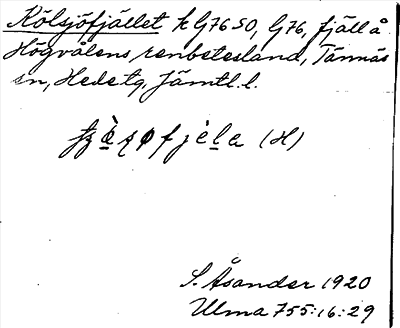 Kölsjöfjället k G7650, G76, fjäll å
Högvålens renbetesland, Tännäs
sn, Hede tg, Jämtl. l.
fjèla (H)
S. Åsander 1920
Ulma 755:16:29